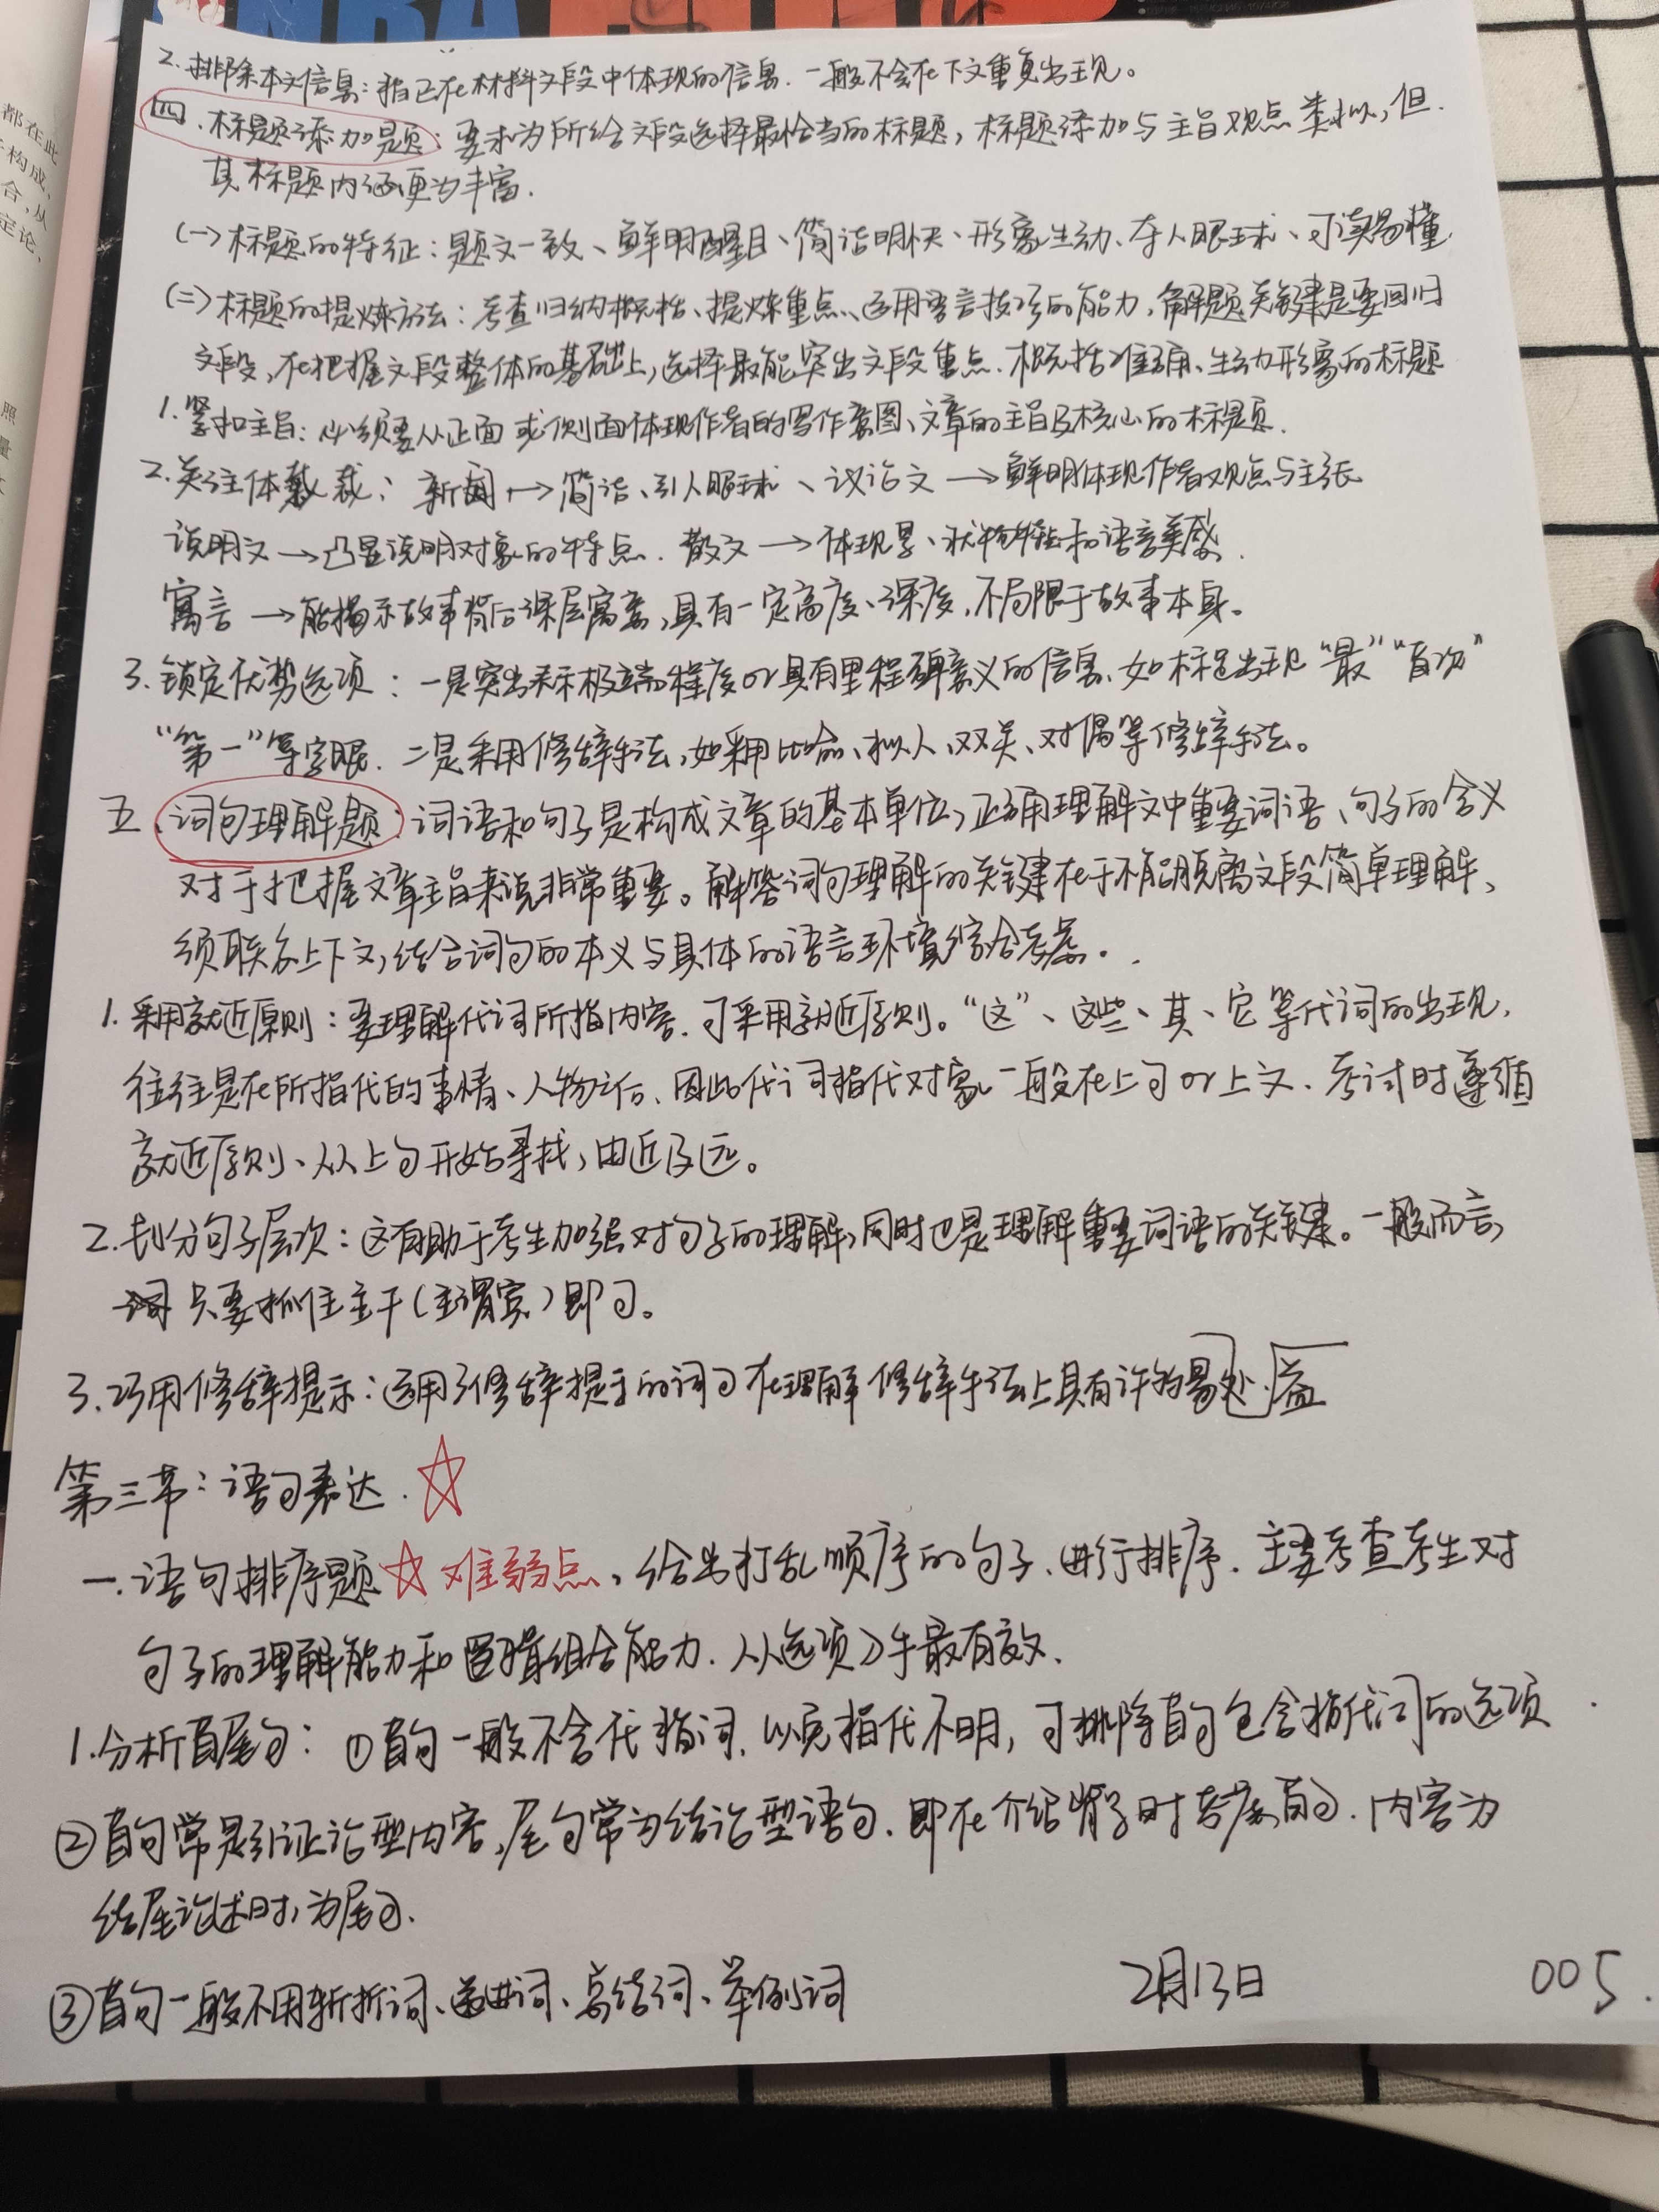 NBA
都在此
构成,
合,从
定论,
照
量
2.排除本文信息:指已在材料文段中体现的信息.一般不会在下文重复出现。
四.标题添加题:要求为所给文段选择最恰当的标题,标题添加与主旨观点类似,但
其标题内涵更为丰富.
(一)标题的特征:题文一致、鲜明醒目、简洁明快、形象生动、夺人眼球、可读易懂.
(二)标题的提炼方法:考查归纳概括、提炼重点、运用语言技巧的能力,解题关键是要回归
文段,在把握文段整体的基础上,选择最能突出文段重点.概括准确、生动形象的标题
1.紧扣主旨:必须要从正面或侧面体现作者的写作意图、文章的主旨及核心的标题.
2.关注体裁:新闻→简洁、引人眼球、议论文→鲜明体现作者观点与主张
说明文→凸显说明对象的特点.散文→体现景、状物特性和语言美感.
寓言→能揭示故事背后深层寓意,具有一定高度、深度,不局限于故事本身。
3.锁定优势选项:一是突出表示极端程度or具有里程碑意义的信息、如标题出现“最”“首次”
“第一”等字眼.二是采用修辞手法,如采用比喻、拟人、双关、对偶等修辞手法。
五.词句理解题:词语和句子是构成文章的基本单位,正确理解文中重要词语、句子的含义
对于把握文章主旨来说非常重要。解答词句理解的关键在于不能脱离文段简单理解、
须联系上下文,结合词句的本义与具体的语言环境综合考虑。
1.采用就近原则:要理解代词所指内容.可采用就近原则。“这”、这些、其、它等代词的出现,
往往是在所指代的事情、人物之后、因此代词指代对象一般在上句or上文.考试时遵循
就近原则、从上句开始寻找,由近及远。
2.划分句子层次:这有助于考生加强对句子的理解,同时也是理解重要词语的关键。一般而言,
只要抓住主干(主谓宾)即可。
3.巧用修辞提示:运用了修辞提示的词句在理解修辞手法上具有许多易处.益
第三节:语句表达.☆
一.语句排序题☆难弱点、给出打乱顺序的句子.进行排序.主要考查考生对
句子的理解能力和逻辑组合能力.从选项入手最有效.
1.分析首尾句:①首句一般不含代指词.以免指代不明,可排除首句包含指代词的选项.
②首句常是引证论型内容,尾句常为结论型语句.即在介绍背景时考虑首句.内容为
结尾论述时,为尾句.
③首句一般不用转折词、递进词、总结词、举例词
2月13日
005.